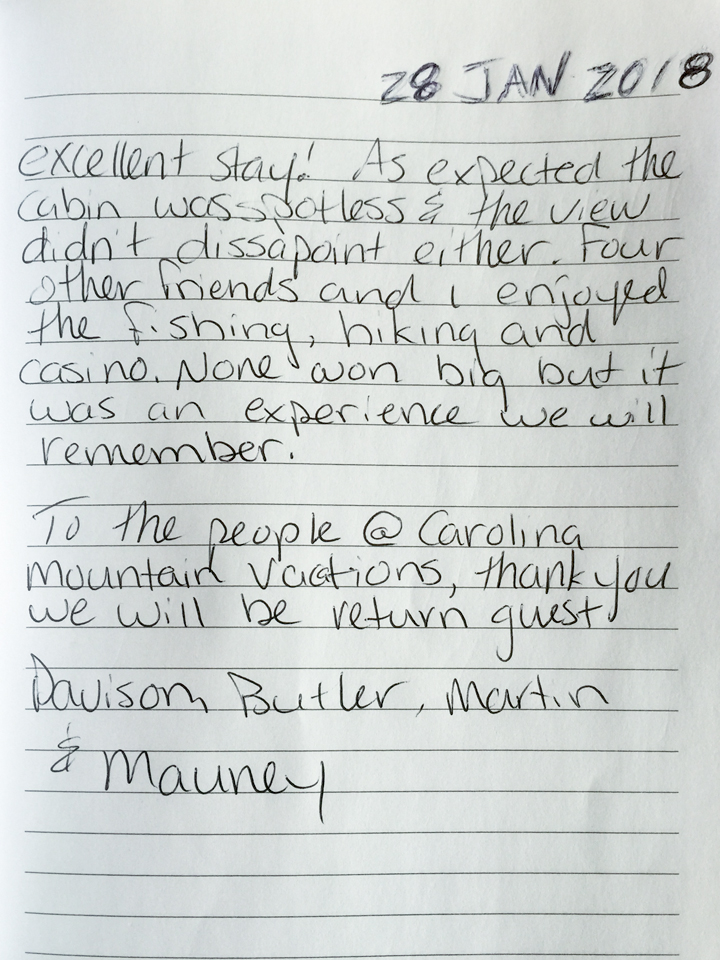 28 JAN 2018
excellent stay! As expected the
cabin was spotless & the view
didn't dissapoint either. Four
other friends and i enjoyed
the fishing, hiking and
casino. None won big but it
was an experience we will
remember.
To the people @ Carolina
Mountain Vactions, thank you
we will be return guest!
Davison, Butler, Martin
& Mauney